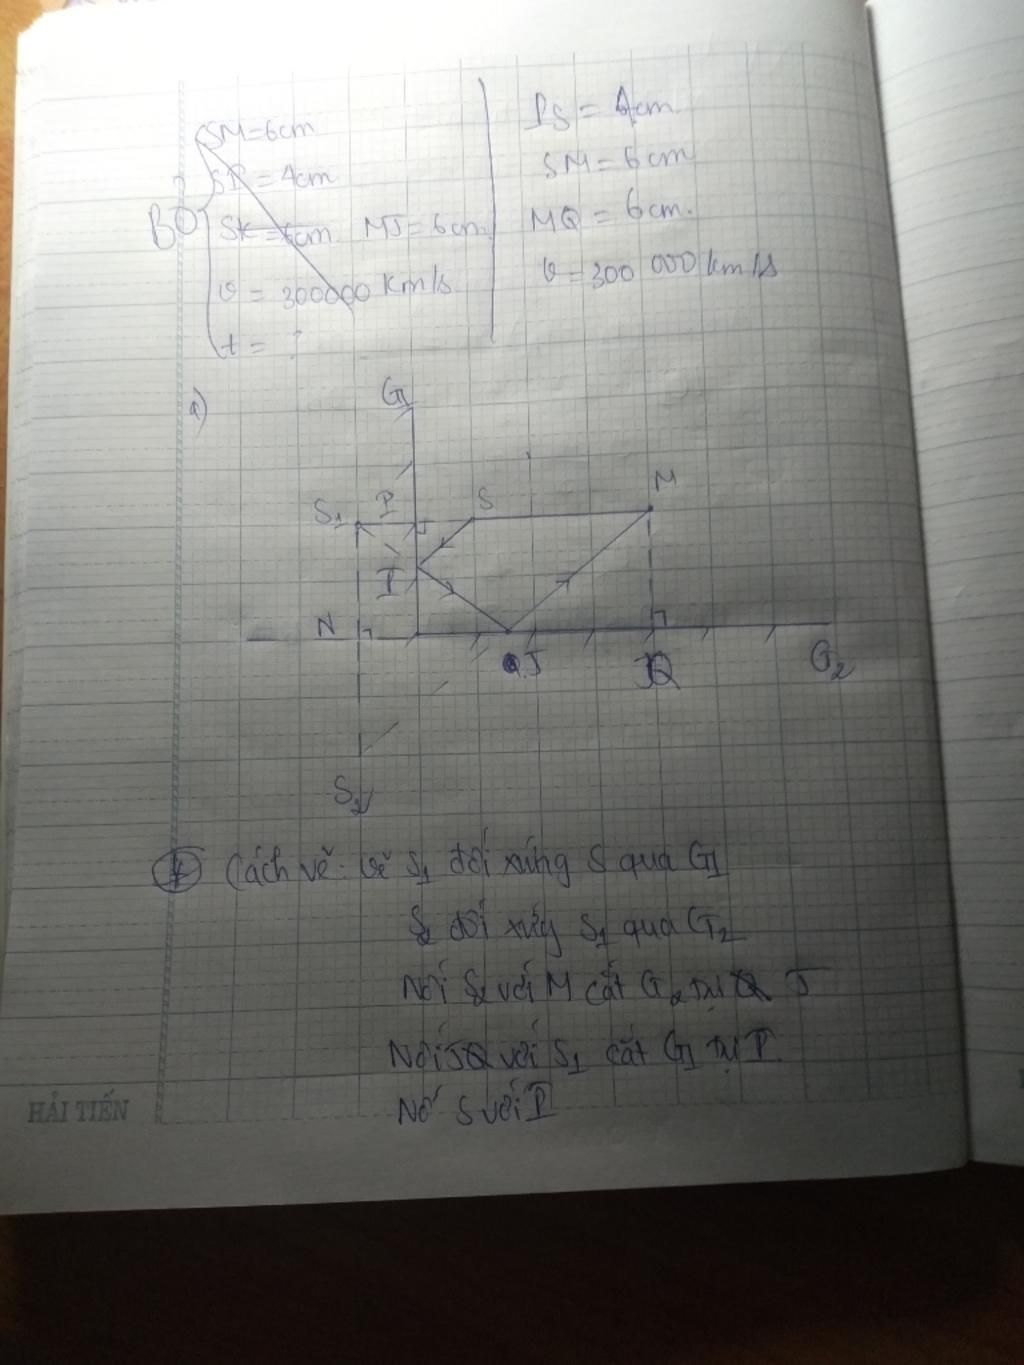 SM=6cm
SP = 4cm
BO
SK = 6cm MJ = 6cm
v = 300000 km/s
t = ?
PS = 4cm
SM = 6cm
MQ = 6cm.
v = 300 000 km/s
a)
G1
S1 P S M
I
N J Q G2
S2
Cách vẽ: Vẽ S1 đối xứng S qua G1
S2 đối xứng S1 qua G2
Nối S2 với M cắt G2 tại J
Nối J với S1 cắt G1 tại I
Nối S với I
HẢI TIẾN